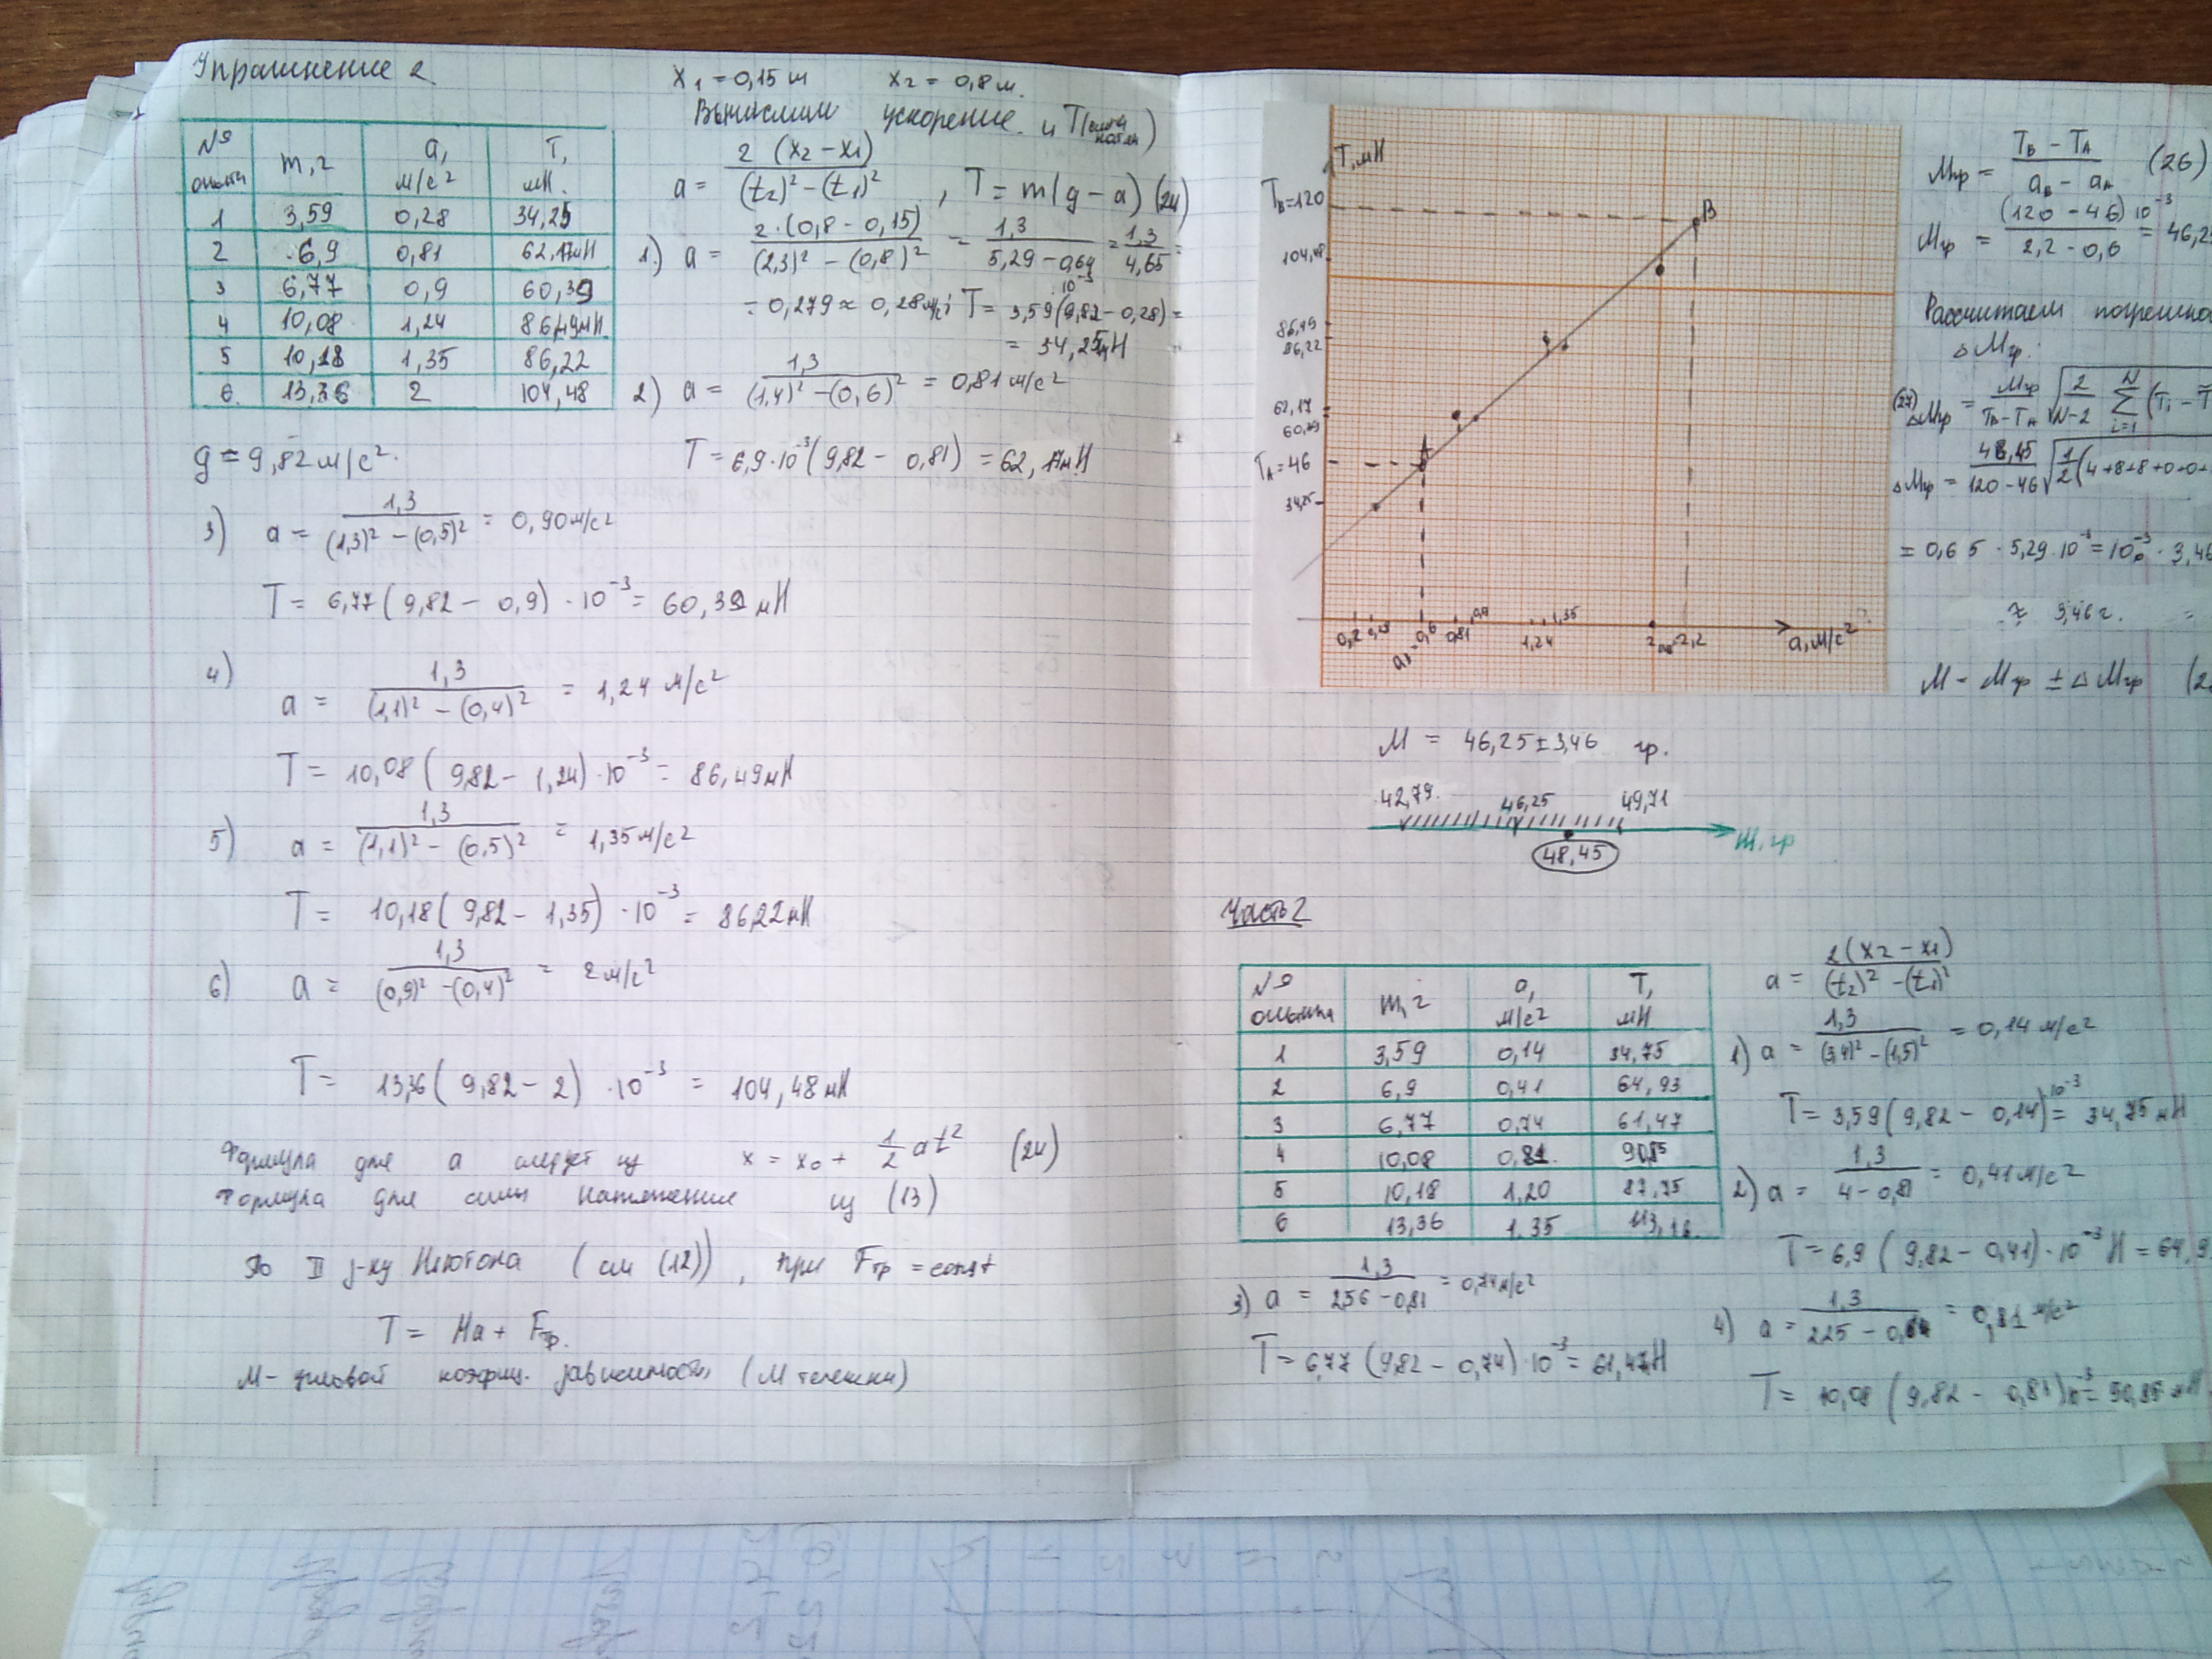 Упражнение 2
x₁ = 0,15 м x₂ = 0,8 м.
Вычислим ускорение и T (силы натяж)
№ опыта | m, г | a, м/с² | T, мН.
1 | 3,59 | 0,28 | 34,25
2 | 6,9 | 0,81 | 62,17мН
3 | 6,77 | 0,9 | 60,39
4 | 10,08 | 1,24 | 86,49мН
5 | 10,18 | 1,35 | 86,22
6. | 13,36 | 2 | 104,48
g = 9,82 м/с².
a = 2 (x₂ – x₁) / (t₂)² – (t₁)² , T = m(g – a) (24)
1) a = 2·(0,8 – 0,15) / (2,3)² – (0,8)² = 1,3 / 5,29 – 0,64 = 1,3 / 4,65 =
= 0,279 ≈ 0,28 м/с²; T = 3,59(9,82 – 0,28)·10⁻³ =
= 34,25мН
2) a = 1,3 / (1,4)² – (0,6)² = 0,81 м/с²
T = 6,9·10⁻³(9,82 – 0,81) = 62,17мН
3) a = 1,3 / (1,3)² – (0,5)² = 0,90 м/с²
T = 6,77(9,82 – 0,9)·10⁻³ = 60,39 мН
4) a = 1,3 / (1,1)² – (0,4)² = 1,24 м/с²
T = 10,08(9,82 – 1,24)·10⁻³ = 86,49мН
5) a = 1,3 / (1,1)² – (0,5)² = 1,35 м/с²
T = 10,18(9,82 – 1,35)·10⁻³ = 86,22мН
6) a = 1,3 / (0,9)² – (0,4)² = 2 м/с²
T = 13,36(9,82 – 2)·10⁻³ = 104,48мН
Формула для a следует из x = x₀ + 1/2 at² (24)
Формула для силы натяжения из (13)
По II з-ну Ньютона (см (12)), при Fтр = const
T = Ma + Fтр.
M – угловой коэфиц. зависимости (M тележки)
T, мН
T_B=120
104,48
86,49
86,22
62,17
60,39
T_A=46
34,25
A
B
0,2 0,28 a_A=0,6 0,81 0,9 1,24 1,35 2 a_B=2,2 a, м/с²
Mгр = T_B – T_A / a_B – a_A (26)
Mгр = (120 – 46)10⁻³ / 2,2 – 0,6 = 46,25
Рассчитаем
ΔMгр.
(27) ΔMгр = Mгр / T_B – T_A √ 2 / N–2 Σ i=1 N (Tᵢ –
ΔMгр = 48,45 / 120 – 46 √ 1/2 (4+8+8+0+0+
= 0,65 · 5,29·10⁻³ = 10⁻³ · 3,46
≈ 3,46 г. =
M = Mгр ± ΔMгр
M = 46,25 ± 3,46 гр.
42,79 46,25 49,71
48,45
m, гр
Часть 2
№ опыта | m, г | a, м/с² | T, мН
1 | 3,59 | 0,14 | 34,75
2 | 6,9 | 0,41 | 64,93
3 | 6,77 | 0,74 | 61,47
4 | 10,08 | 0,81. | 90,85
5 | 10,18 | 1,20 | 87,75
6 | 13,36 | 1,35 | 113,16
a = 2(x₂ – x₁) / (t₂)² – (t₁)²
1) a = 1,3 / (3,4)² – (1,5)² = 0,14 м/с²
T = 3,59(9,82 – 0,14)·10⁻³ = 34,75 мН
2) a = 1,3 / 4 – 0,81 = 0,41 м/с²
T = 6,9 (9,82 – 0,41)·10⁻³ Н = 64,9
3) a = 1,3 / 2,56 – 0,81 = 0,74 м/с²
T = 6,77 (9,82 – 0,74)·10⁻³ = 61,47Н
4) a = 1,3 / 2,25 – 0,64 = 0,81 м/с²
T = 10,08 (9,82 – 0,81)10⁻³ = 90,85 мН